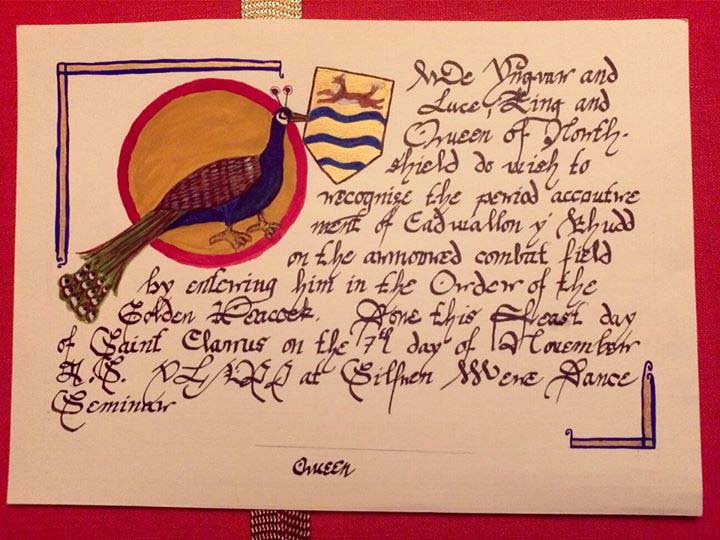 We Yngvar and
Luce, King and
Queen of North-
shield do wish to
recognise the period accoutre
ment of Cadwallon y Rhudd
on the armored combat field
by entering him in the Order of the
Golden Peacock. Done this feast day
of Saint Clarus on the 7th day of November
A.S. at Silfren Mere Dance
Seminar
Queen